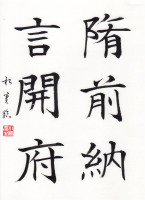 隋前納
言開府